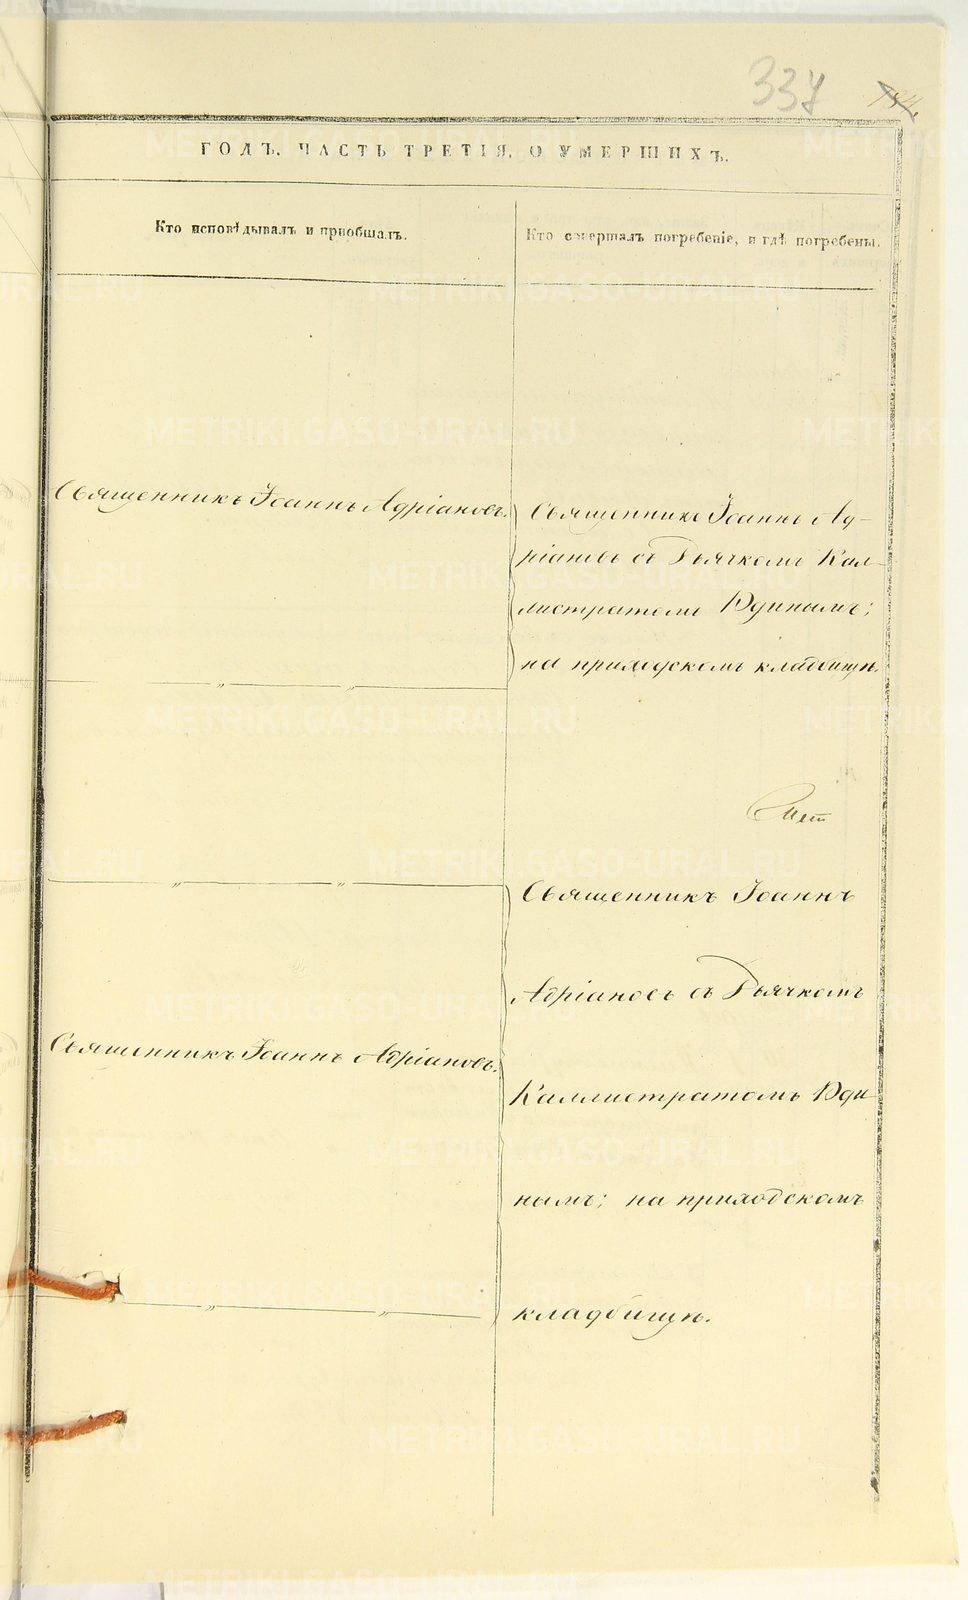 337
ГОДЪ. ЧАСТЬ ТРЕТІЯ, О УМЕРШИХЪ.
Кто исповѣдывалъ и пріобщалъ.
Кто совершалъ погребеніе, и гдѣ погребены.
Священникъ Іоаннъ Адріановъ.
Священникъ Іоаннъ Ад-
ріановъ съ Дьячкомъ Кал-
листратомъ Юдинымъ;
на приходскомъ кладбищѣ.
Священникъ Іоаннъ
Адріановъ съ Дьячкомъ
Священникъ Іоаннъ Адріановъ.
Каллистратомъ Юди
нымъ; на приходскомъ
кладбищѣ.
METRIKI.GASO-URAL.RU